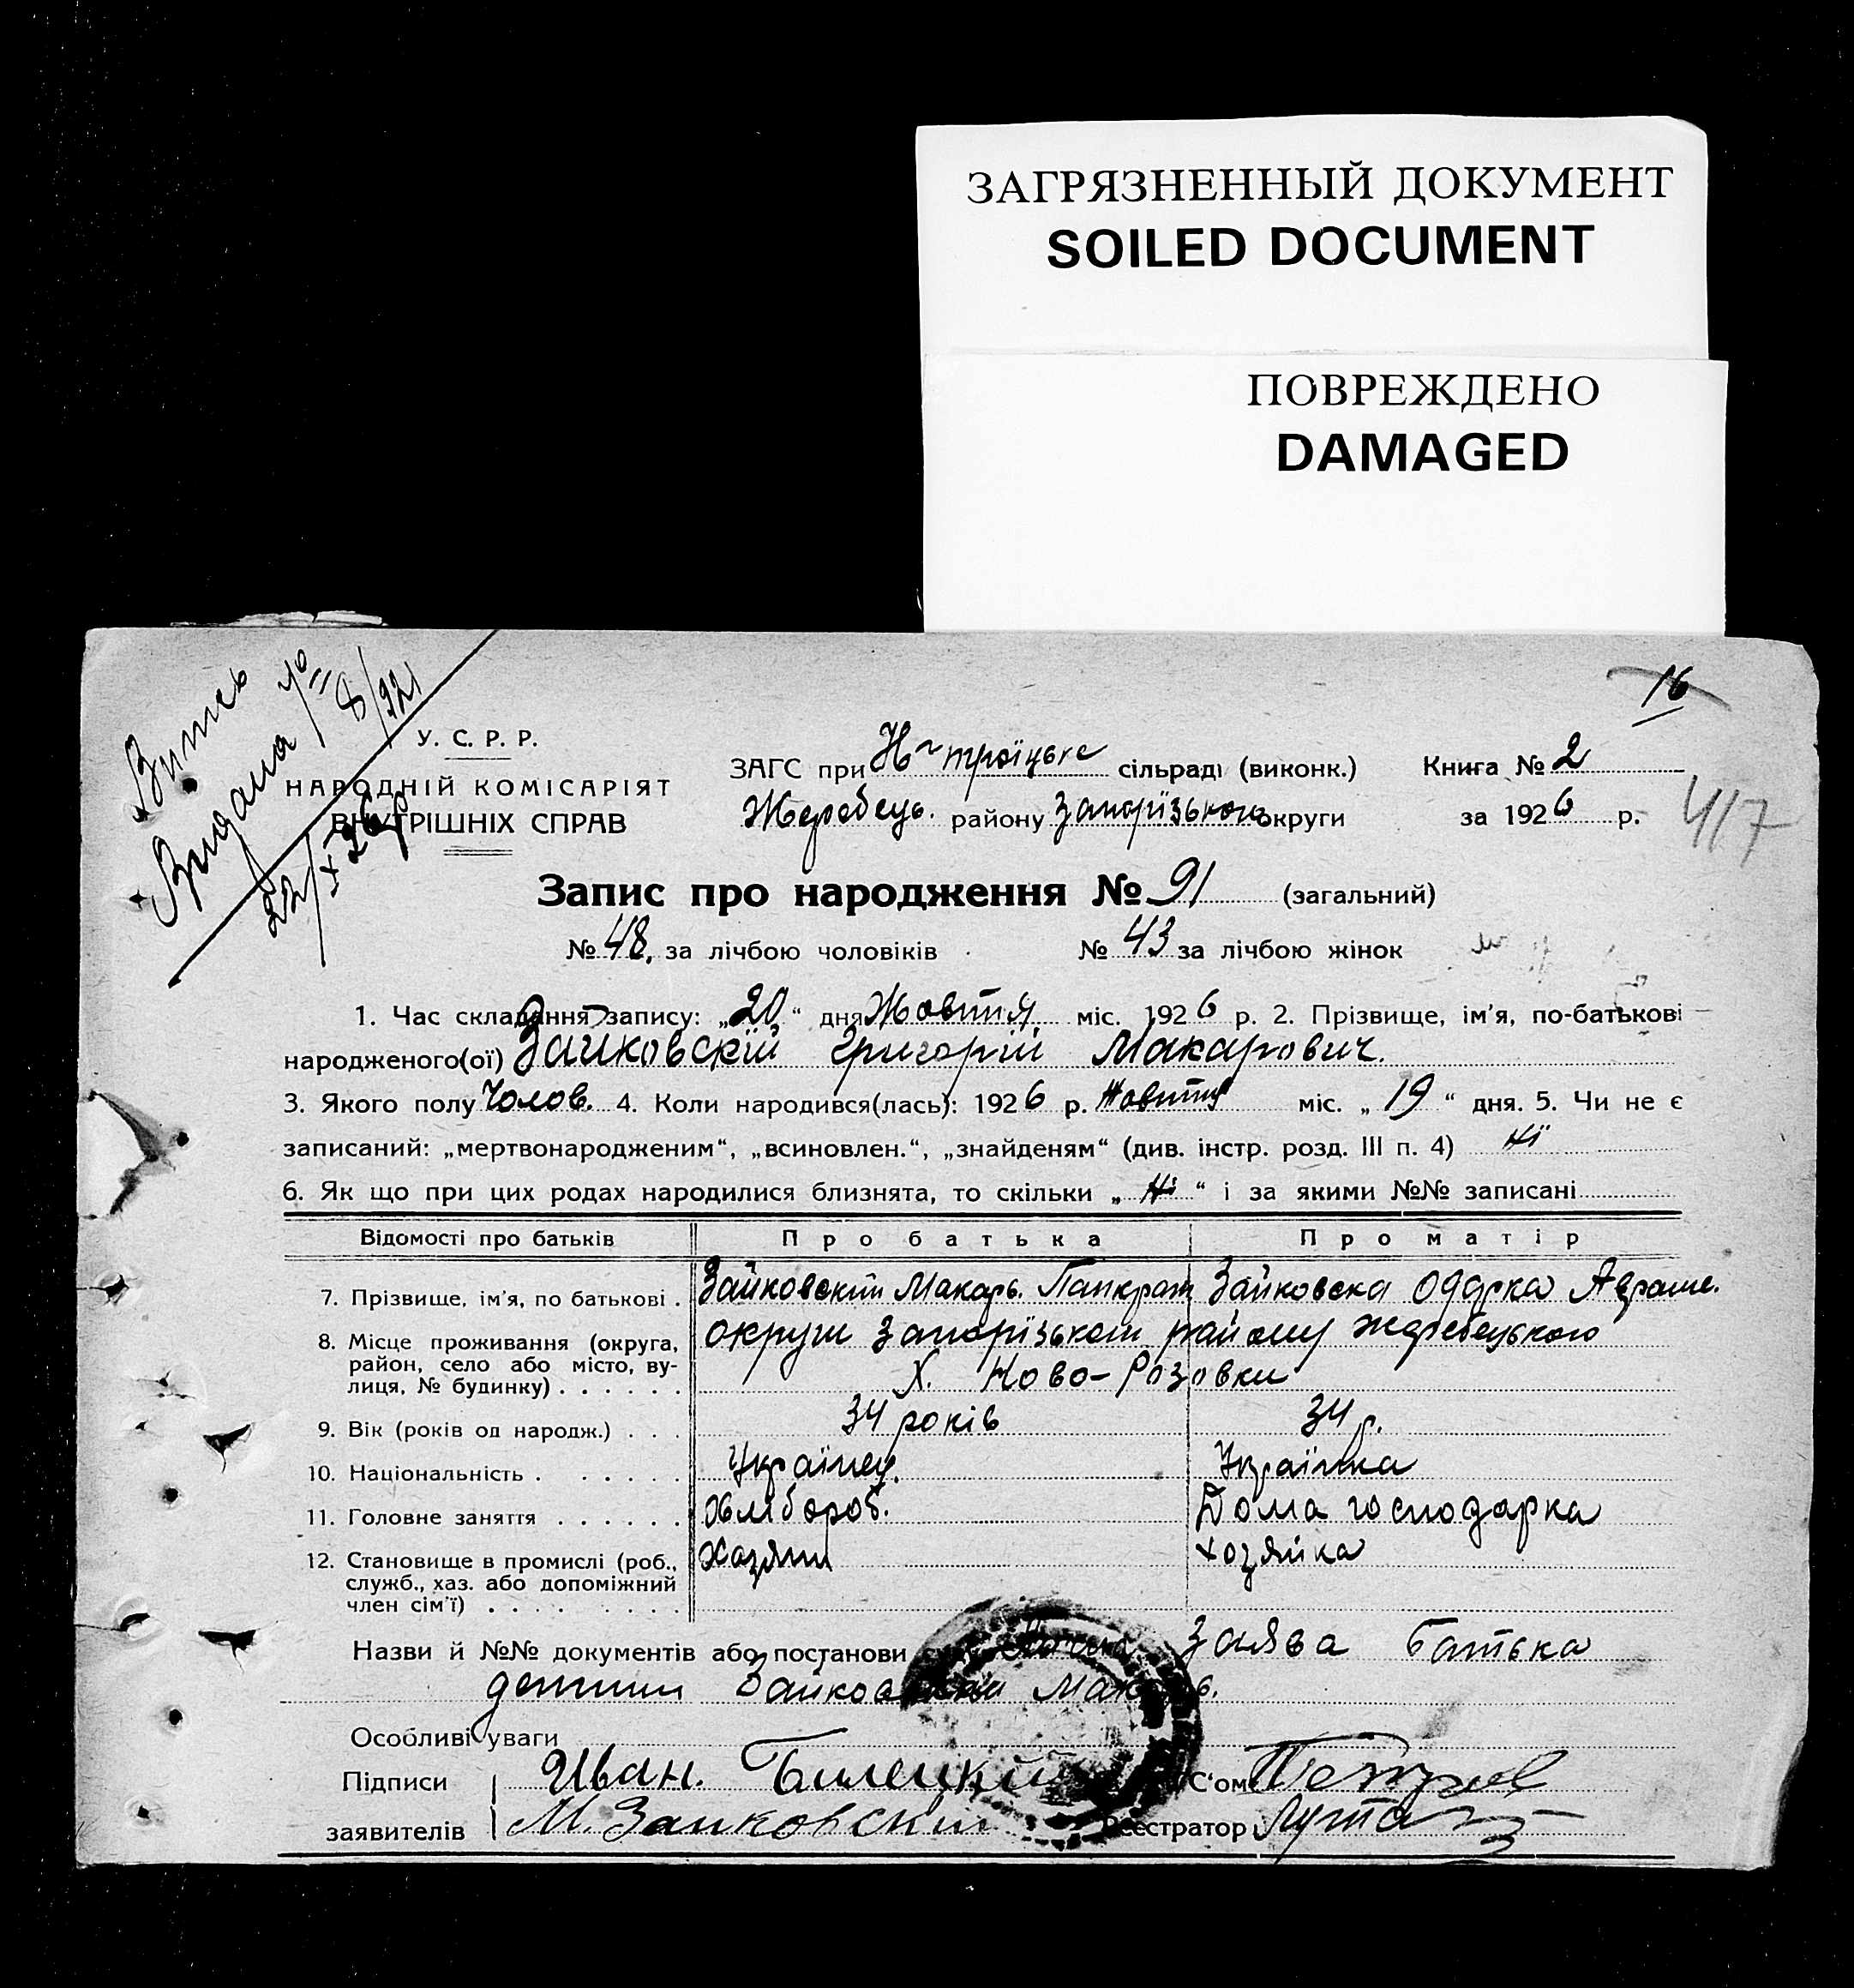 ЗАГРЯЗНЕННЫЙ ДОКУМЕНТ
SOILED DOCUMENT
ПОВРЕЖДЕНО
DAMAGED
16
Витяг
Видана
22/X 26 р
У. С. Р. Р.
НАРОДНІЙ КОМІСАРІЯТ
ВНУТРІШНІХ СПРАВ
ЗАГС при Н-троїцьке сільраді (виконк.)
Жеребець. району Запорізького округи
Книга № 2
за 1926 р.
417
Запис про народження № 91 (загальний)
№ 48, за лічбою чоловіків № 43 за лічбою жінок
1. Час складання запису: „20“ дня Жовтня міс. 1926 р. 2. Прізвище, ім'я, по-батькові
народженого(ої) Зайковскій Григорій Макарович.
3. Якого полу Чолов. 4. Коли народився(лась): 1926 р. Жовтня міс. „19“ дня. 5. Чи не є
записаний: „мертвонародженим“, „всиновлен.“, „знайденям“ (див. інстр. розд. III п. 4) ні
6. Як що при цих родах народилися близнята, то скільки „Ні“ і за якими №№ записані
Відомості про батьків Про батька Про матір
7. Прізвище, ім'я, по батькові . Зайковский Макарь. Панкрат Зайковска Одарка
8. Місце проживання (округа, район, село або місто, вулиця, № будинку) . . . . . . округи Запорізькои району Жеребецького
Х. Ново-Розовки
9. Вік (років од народж.) . . . 34 років 34 р.
10. Національність . . . . . . Українец. Українка
11. Головне заняття . . . . . . Хлібороб. Дома господарка
12. Становище в промислі (роб., служб., хаз. або допоміжний член сім'ї) . . . . . . . . Хазяин хозяйка
Назви й №№ документів або постанови заява батька
детини Зайковский
Особливі уваги
Підписи Иван. Билецкий С'ом Петров
заявителів М. Зайковский Реєстратор